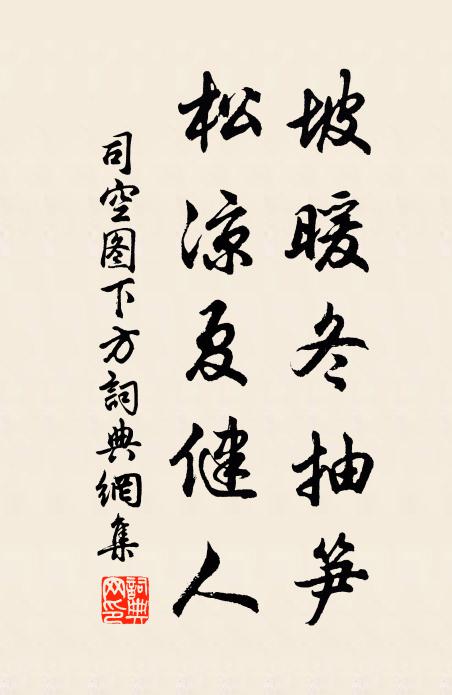 坡暖冬抽笋
松凉夏健人
司空图下方詞典網集
詞典网印